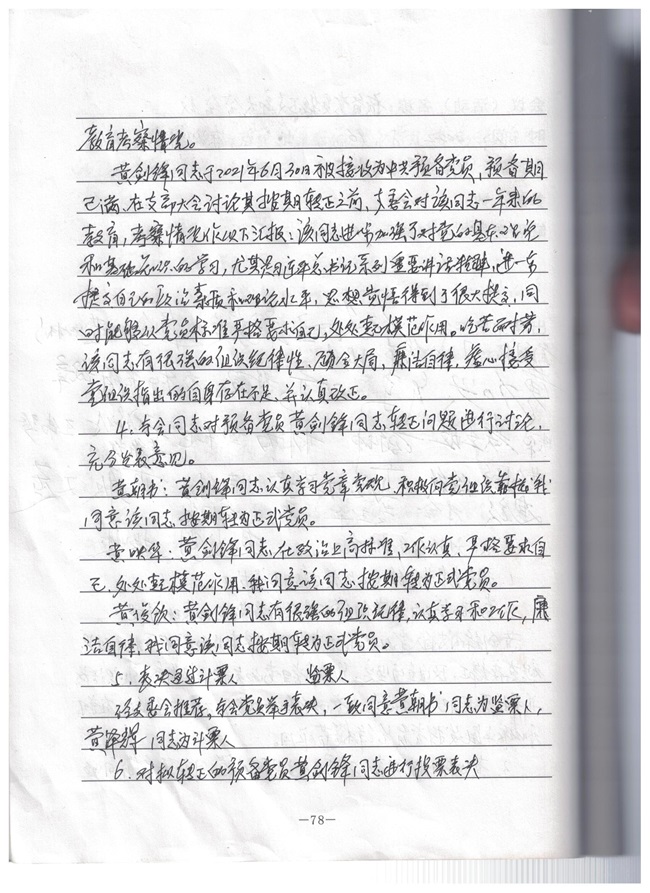 教育考察情况。
黄剑锋同志于2021年6月30日被接收为中共预备党员，预备期
已满，在支部大会讨论其按期转正之前，支委会对该同志一年来的
教育，考察情况作以下汇报：该同志进一步加强了对党的基本理论
和基础知识的学习，尤其是习近平总书记系列重要讲话精神，进一步
提高自己的政治素质和理论水平，思想觉悟得到了很大提高，同
时能够以党员标准严格要求自己，处处起模范作用。吃苦耐劳，
该同志有很强的组织纪律性、顾全大局，廉洁自律，虚心接受
党组织指出的自身存在不足、并认真改正。
4、与会同志对预备党员黄剑锋同志转正问题进行讨论，
充分发表意见。
黄朝书：黄剑锋同志认真学习党章党规，积极向党组织靠拢，我
同意该同志按期转为正式党员。
黄映华：黄剑锋同志在政治上高标准，工作认真、严格要求自
己，处处起模范作用，我同意该同志按期转为正式党员。
黄俊钦：黄剑锋同志有很强的组织纪律，认真学习和工作，廉
洁自律，我同意该同志按期转为正式党员。
5、表决通过计票人 监票人
经支委会推荐，与会党员举手表决，一致同意黄朝书同志为监票人，
黄泽辉同志为计票人
6、对拟转正的预备党员黄剑锋同志进行投票表决
—78—